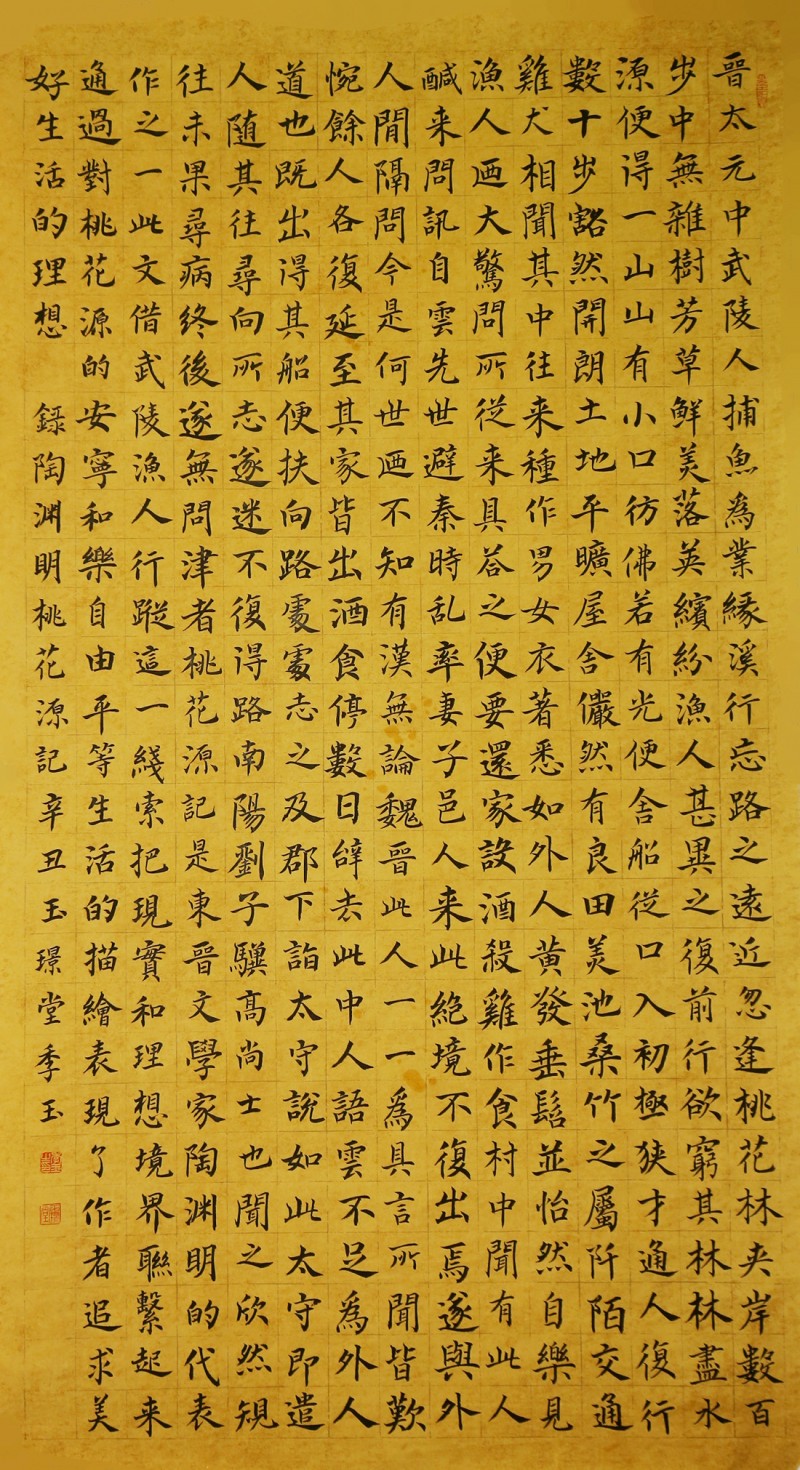 晉太元中武陵人捕魚為業緣溪行忘路之遠近忽逢桃花林夹岸數百
步中無雜樹芳草鮮美落英繽紛漁人甚異之復前行欲窮其林林盡水
源便得一山山有小口彷佛若有光便舍船從口入初極狹才通人復行
數十步豁然開朗土地平曠屋舍儼然有良田美池桑竹之屬阡陌交通
雞犬相聞其中往来種作男女衣著悉如外人黄發垂髫並怡然自樂見
漁人迺大驚問所從来具答之便要還家設酒殺雞作食村中聞有此人
醎来問訊自雲先世避秦時乱率妻子邑人来此絕境不復出焉遂與外
人間隔問今是何世迺不知有漢無論魏晉此人一一為具言所聞皆歎
惋餘人各復延至其家皆出酒食停數日辭去此中人語雲不足為外人
道也既出得其船便扶向路處處志之及郡下詣太守說如此太守即遣
人随其往尋向所志遂迷不復得路南陽劉子驥高尚士也聞之欣然規
往未果尋病終後遂無問津者桃花源記是東晉文學家陶渊明的代表
作之一此文借武陵漁人行蹤這一綫索把現實和理想境界聯繫起来
通過對桃花源的安寧和樂自由平等生活的描繪表現了作者追求美
好生活的理想 錄陶渊明桃花源記辛丑玉璟堂季玉